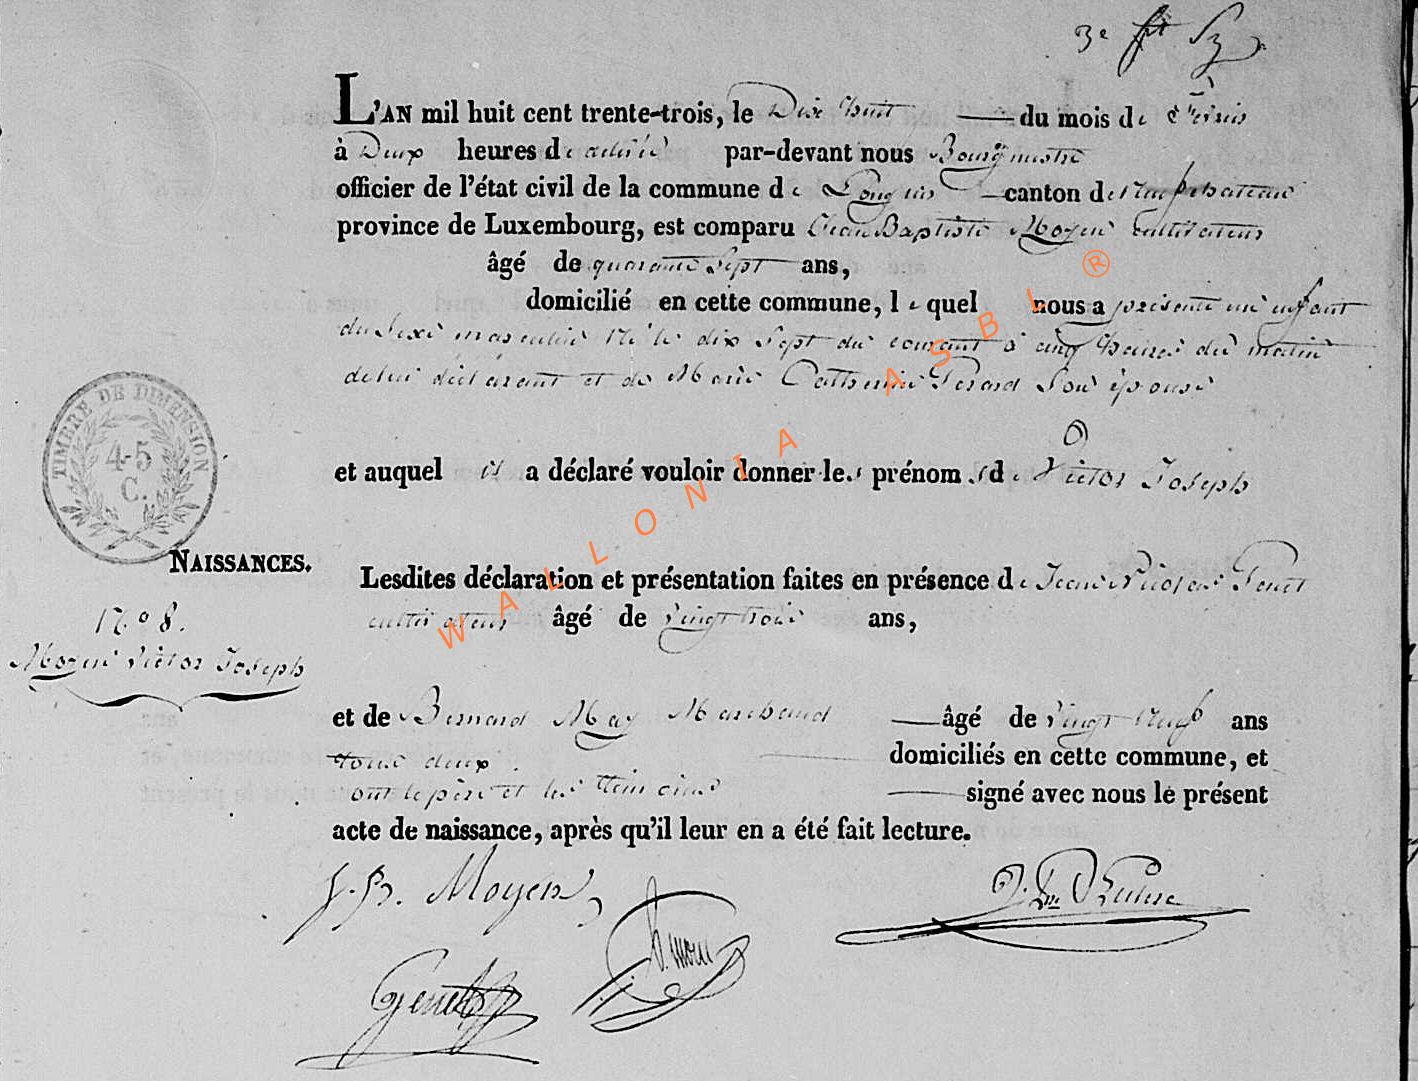 3e
L'AN mil huit cent trente-trois, le Dix huit du mois de février
à Deux heures de relevée par-devant nous Bourgmestre
officier de l'état civil de la commune de Longlier canton de neufchateau
province de Luxembourg, est comparu Jean Baptiste Moyen cultivateur
âgé de quarante sept ans,
domicilié en cette commune, lequel nous a présenté un enfant
du sexe masculin né le dix sept du courant à cinq heures du matin
de lui déclarant et de Marie Catherine Gerard son épouse
et auquel il a déclaré vouloir donner les prénoms de Victor Joseph
TIMBRE DE DIMENSION
45
C.
NAISSANCES.
No 8.
Moyen Victor Joseph
Lesdites déclaration et présentation faites en présence de Jean Nicolas
cultivateur âgé de vingt trois ans,
et de Bernard May Marchand âgé de vingt neuf ans
tous deux domiciliés en cette commune, et
ont le père et les témoins signé avec nous le présent
acte de naissance, après qu'il leur en a été fait lecture.
J. B. Moyen
WALLONIA ASBL ®